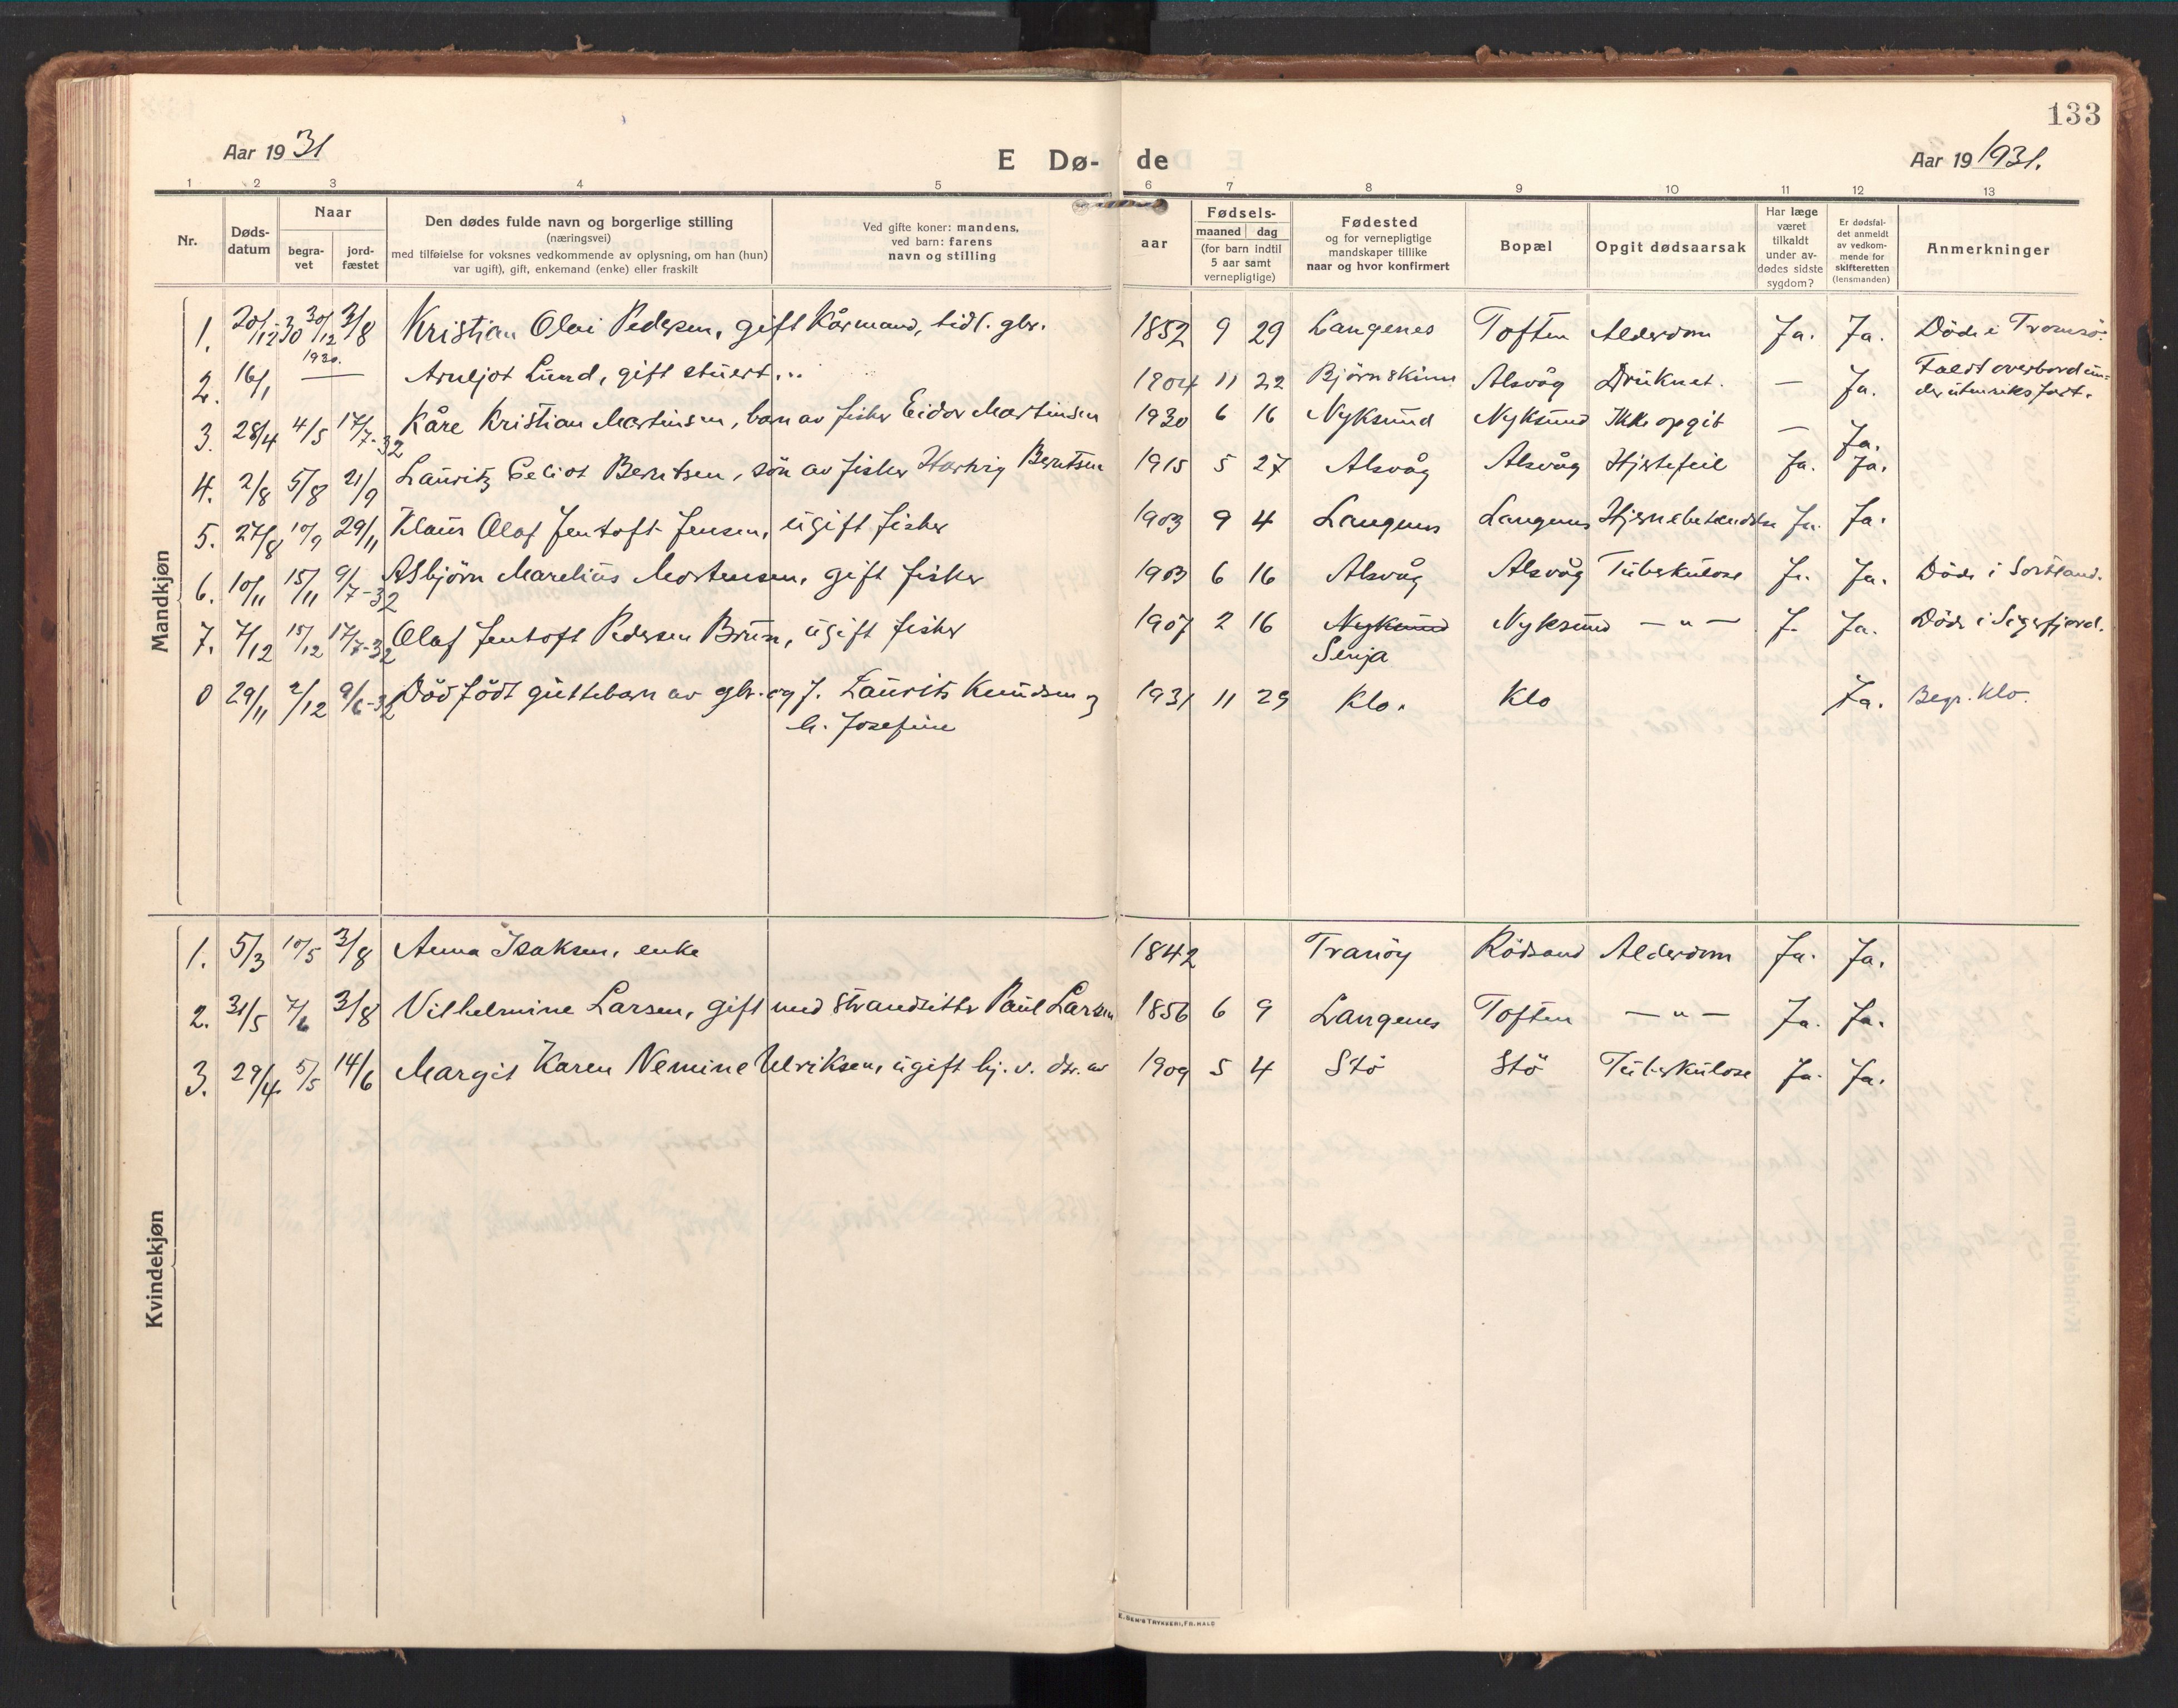 133
Aar 1931
E Dø- de
Aar 19 1931.
1 2 3 4 5 6 7 8 9 10 11 12 13
Nr.
Døds-
datum
Naar
begra-
vet
jord-
fæstet
Den dødes fulde navn og borgerlige stilling
(næringsvei)
med tilføielse for voksnes vedkommende av oplysning, om han (hun)
var ugift), gift, enkemand (enke) eller fraskilt
Ved gifte koner: mandens,
ved barn: farens
navn og stilling
aar
Fødsels-
maaned dag
(for barn indtil
5 aar samt
vernepligtige)
Fødested
og for vernepligtige
mandskaper tillike
naar og hvor konfirmert
Bopæl
Opgit dødsaarsak
Har læge
været
tilkaldt
under av-
dødes sidste
sygdom?
Er dødsfal-
det anmeldt
av vedkom-
mende for
skifteretten
(lensmanden)
Anmerkninger
Mandkjøn
1. 20/12-30 30/12 1930. 3/8 Kristian Olai Pedersen, gift Kårmand, tidl. gbr. 1852 9 29 Langenes Toften Alderdom Ja. Ja. Döde i Tromsö.
2. 16/1 — Arnljot Lund, gift stuert... 1904 11 22 Björnskinn Alsvåg Druknet. — Ja. Faldt overbord un-
der utenriks fart.
3. 28/4 4/5 17/7-32 Kåre Kristian Martinsen, barn av fisker Eidor Martinsen 1930 6 16 Nyksund Nyksund Ikke opgit — Ja.
4. 2/8 5/8 21/9 Lauritz Eeliot Berntsen, sön av fisker Hartvig Berntsen 1915 5 27 Alsvåg Alsvåg Hjertefeil Ja. Ja.
5. 27/8 10/9 29/11 Klaus Olaf Jentoft Jensen, ugift fisker 1903 9 4 Langenes Langenes Hjernebetendelse Ja. Ja.
6. 10/11 15/11 9/7-32 Asbjörn Marelius Mortensen, gift fisker 1903 6 16 Alsvåg Alsvåg Tuberkulose J. Ja. Döde i Sortland.
7. 7/12 15/12 17/7-32 Olaf Jentoft Pedersen Brun, ugift fisker 1907 2 16 Nyksund Nyksund — " — J. Ja. Döde i Sigerfjord.
Senja
0 29/11 2/12 9/6-32 Död födt guttebarn av gbr. og f. Laurits Knudsen og 1931 11 29 Klo. Klo Ja. Begr. Klo.
h. Josefine
Kvindekjøn
1. 5/3 10/5 3/8 Anna Isaksen, enke 1842 Tranöy Rödsand Alderdom Ja. Ja.
2. 31/5 7/6 3/8 Vilhelmine Larsen, gift med strandsitter Paul Larsen 1856 6 9 Langenes Toften — " — Ja. Ja.
3. 29/4 5/5 14/6 Margit Karen Nemine Ulriksen, ugift hj. v. dtr. av 1909 5 4 Stö Stö Tuberkulose Ja. Ja.
E. SEM'S TRYKKERI, FR.HALD